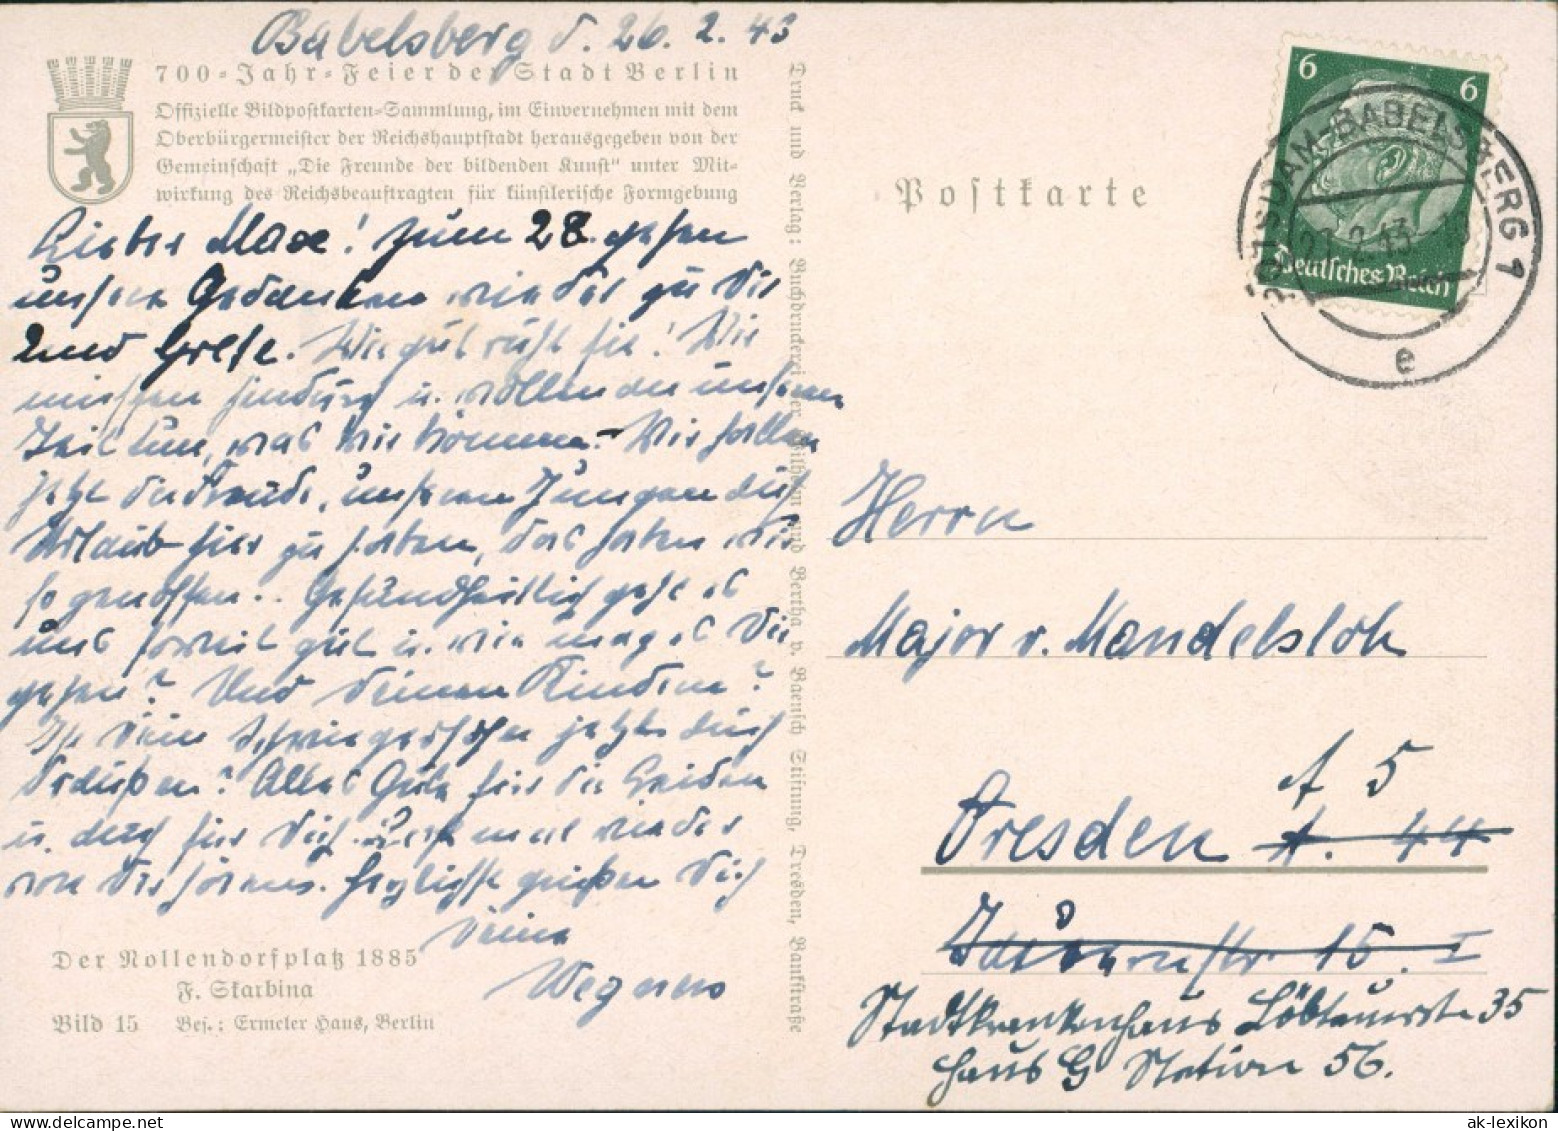 Babelsberg d. 26. 2. 43
700-Jahr-Feier der Stadt Berlin
Offizielle Bildpostkarten-Sammlung, im Einvernehmen mit dem
Oberbürgermeister der Reichshauptstadt herausgegeben von der
Gemeinschaft „Die Freunde der bildenden Kunst“ unter Mit-
wirkung des Reichsbeauftragten für künstlerische Formgebung
Lieber Max! Zum 28. gehen
unsere Gedanken wieder zu Dir
und Grete. Wie gut ruht sie! Wir
müssen hindurch u. wollen den unseren
Teil tun, was wir können. – Wir hatten
jetzt die Freude, unseren Jungen auf
Urlaub hier zu haben, das haben wir
so genossen.. Gesundheitlich geht es
uns soweit gut u. wie mag es Dir
gehen? Und Deinen Kindern?
Ist Dein Schwiegersohn jetzt auch
draußen? Alles Gute für die Beiden
u. auch für Dich. Laß mal wieder
von Dir hören. Herzlichst grüßen Dich
Deine
Wegners
Der Nollendorfplatz 1885
F. Skarbina
Bild 15 Bes.: Ermeler Haus, Berlin
Druck und Verlag: Buchdruckerei der Wilhelm und Bertha v. Baensch Stiftung, Dresden, Bankstraße
Postkarte
6 6
Deutsches Reich
POTSDAM-BABELSBERG 1
27.2.43
e
Herrn
Major v. Mandelsloh
A 5
Dresden A. 44
15. I
Stadtkrankenhaus Löbtauerstr 35
Haus G Station 56.
ak-lexikon